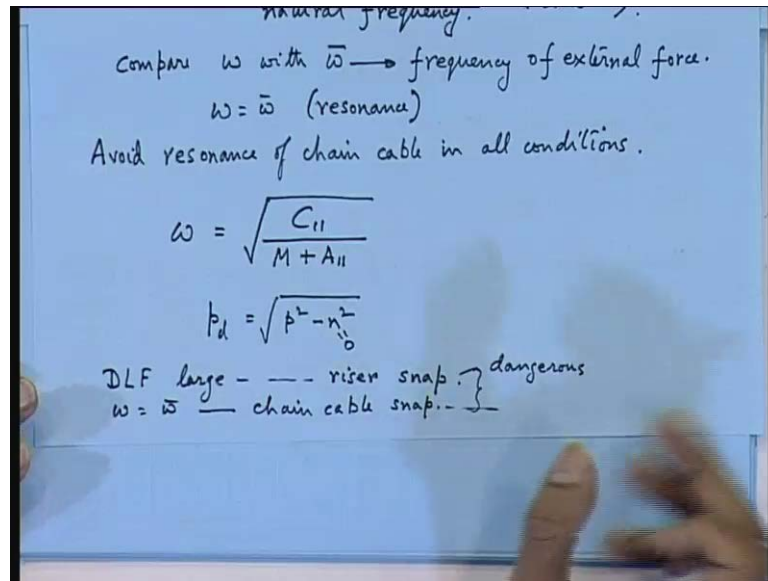 natural frequency.
Compare ω with ω̄ → frequency of external force.
ω = ω̄ (resonance)
Avoid resonance of chain cable in all conditions.
ω = √(C₁₁ / (M + A₁₁))
p_d = √(p² - n²)
= 0
DLF large - --- riser snap. } dangerous
ω = ω̄ — chain cable snap. -